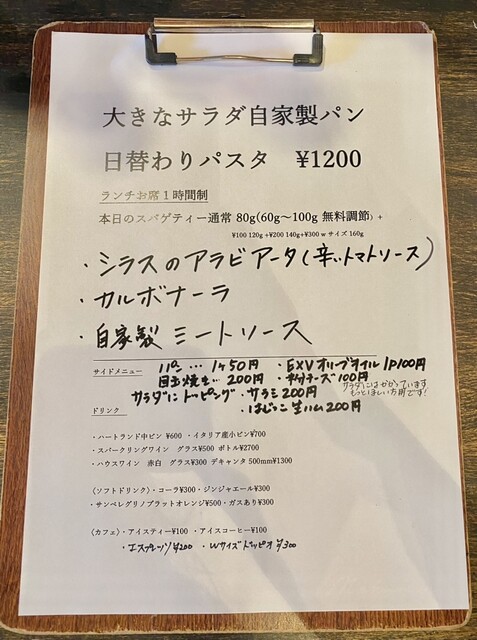 大きなサラダ自家製パン
日替わりパスタ ¥1200
ランチお席１時間制
本日のスパゲティー通常 80g(60g～100g 無料調節) +
¥100 120g +¥200 140g+¥300 w サイズ 160g
・シラスのアラビアータ(辛いトマトソース)
・カルボナーラ
・自家製ミートソース
サイドメニュー
パン… 1ヶ50円 ・EXVオリーブオイル 1P100円
目玉焼き… 200円 ・粉チーズ100円
サラダにトッピング・サラミ200円
サラダにはかかっています
もっとほしい方用です!
・はじっこ生ハム200円
ドリンク
・ハートランド中ビン ¥600 ・イタリア産小ビン¥700
・スパークリングワイン グラス¥500 ボトル¥2700
・ハウスワイン 赤白 グラス¥300 デキャンタ 500mm¥1300
〈ソフトドリンク〉・コーラ¥300・ジンジャエール¥300
・サンペレグリノブラッドオレンジ¥500・ガスあり¥300
〈カフェ〉・アイスティー¥100 ・アイスコーヒー¥100
・エスプレッソ¥200 ・Wサイズドッピオ ¥300